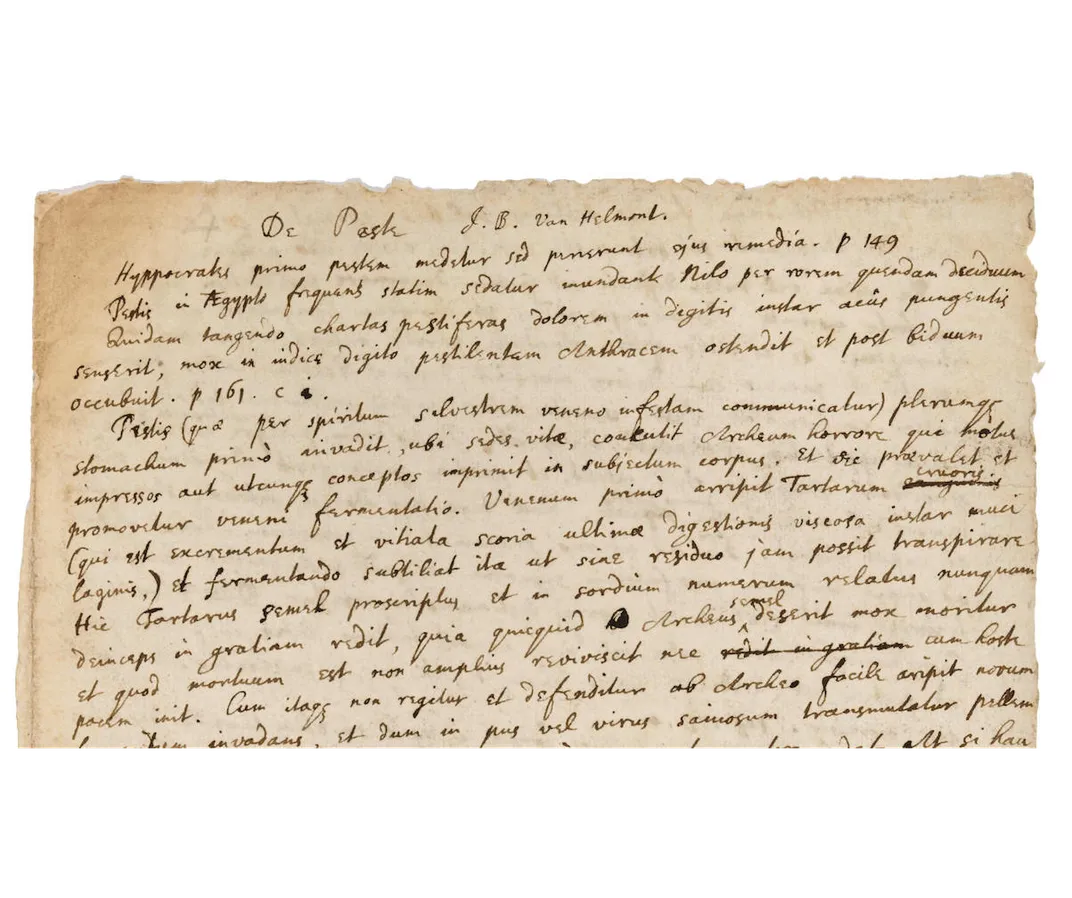 De Peste J. B. Van Helmont.
Hyppocrates primo pestem medetur sed perierunt ejus remedia. p 149
Pestis in Ægypto frequens statim sedatur inundante Nilo per rorem quendam deciduum
Quidam tangendo chartas pestiferas dolorem in digitis instar acûs pungentis
senserit, mox in indice digito pestilentem Anthracem ostendit et post biduum
occubuit. p 161. c
Pestis (quæ per spiritum silvestrem veneno infestam communicatur) plerumqꝫ
stomachum primò invadit, ubi sedes vitæ, concutit Archeum horrore qui motus
impressos aut utcunqꝫ conceptos imprimit in subjectum corpus. Et sic prævalet et
promovetur veneni fermentatio. Venenum primò arripit Tartarum sanguinis cruoris
(qui est excrementum et vitiata scoria ultimæ digestionis viscosa instar muci
laginis,) et fermentando subtiliat ita ut sine residuo jam possit transpirare
Hic Tartarus semel proscriptus et in sordium numerum relatus nunquam
deinceps in gratiam redit, quia quicquid Archeus semel deserit mox moritur
et quod mortuum est non amplius reviviscit nec redit in gratiam cum hoste
pacem init. Cum itaqꝫ non regitur et defenditur ab Archeo facile aripit novum
invadens, et dum in pus vel virus saniosum transmutatur pellem
At si hau